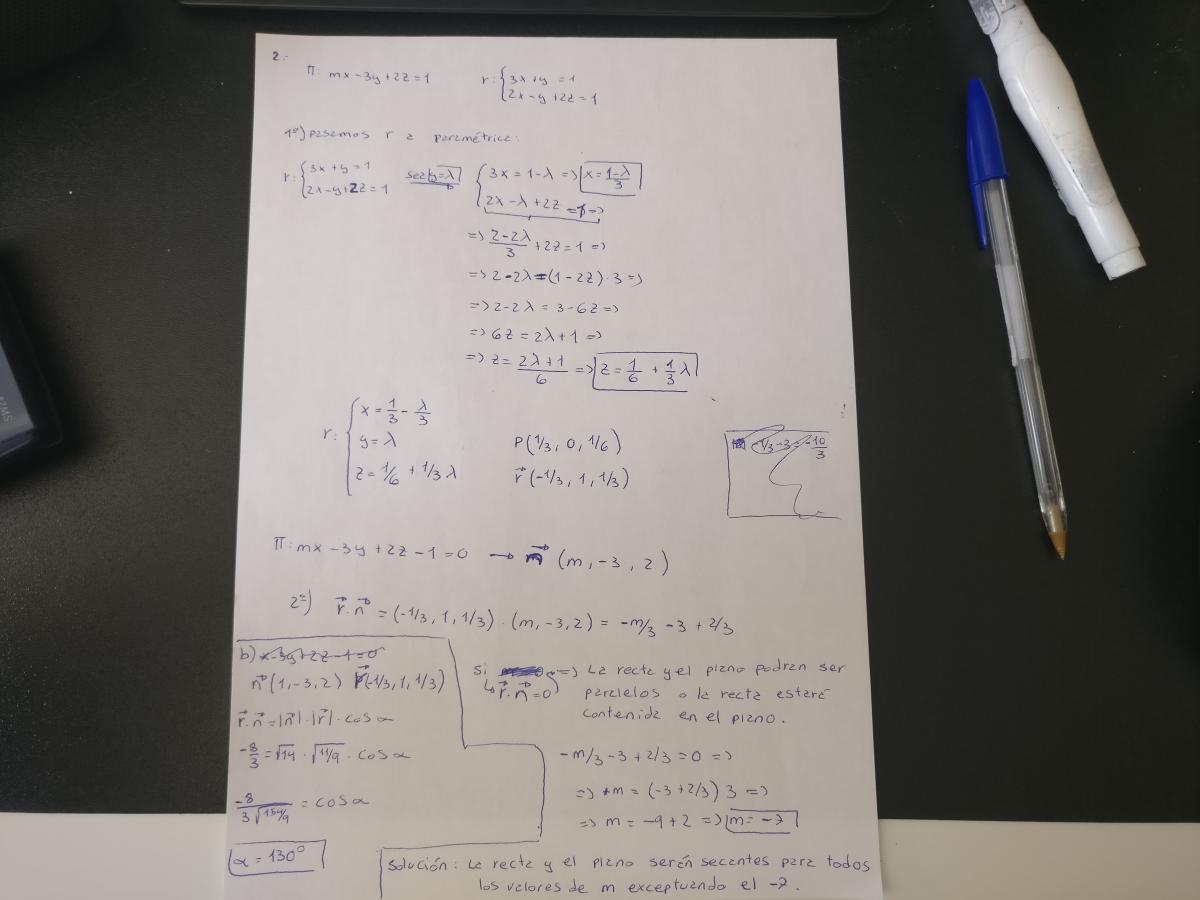 2.-
Π: mx - 3y + 2z = 1    r: { 3x + y = 1
2x - y + 2z = 1
1º) pasamos r a paramétrica:
r: { 3x + y = 1    sea y = λ    { 3x = 1 - λ => x = 1-λ/3
2x - y + 2z = 1    2x - λ + 2z = 1 =>
=> 2-2λ/3 + 2z = 1 =>
=> 2 - 2λ = (1 - 2z) · 3 =>
=> 2 - 2λ = 3 - 6z =>
=> 6z = 2λ + 1 =>
=> z = 2λ+1/6 => z = 1/6 + 1/3 λ
r: { x = 1/3 - λ/3
y = λ    P(1/3, 0, 1/6)
z = 1/6 + 1/3 λ    r⃗ (-1/3, 1, 1/3)
-1/3 - 3 = -10/3
Π: mx - 3y + 2z - 1 = 0 → n⃗ (m, -3, 2)
2º) r⃗ · n⃗ = (-1/3, 1, 1/3) · (m, -3, 2) = -m/3 - 3 + 2/3
b) x - 3y + 2z - 1 = 0
n⃗ (1, -3, 2) r⃗ (-1/3, 1, 1/3)
r⃗ · n⃗ = |n⃗| · |r⃗| · cos α
-8/3 = √14 · √11/9 · cos α
-8/3√154/9 = cos α
α = 130°
Si => La recta y el plano podrán ser
r⃗ · n⃗ = 0 paralelos o la recta estará
contenida en el plano.
-m/3 - 3 + 2/3 = 0 =>
=> +m = (-3 + 2/3) 3 =>
=> m = -9 + 2 => m = -7
Solución: La recta y el plano serán secantes para todos
los valores de m exceptuando el -7.